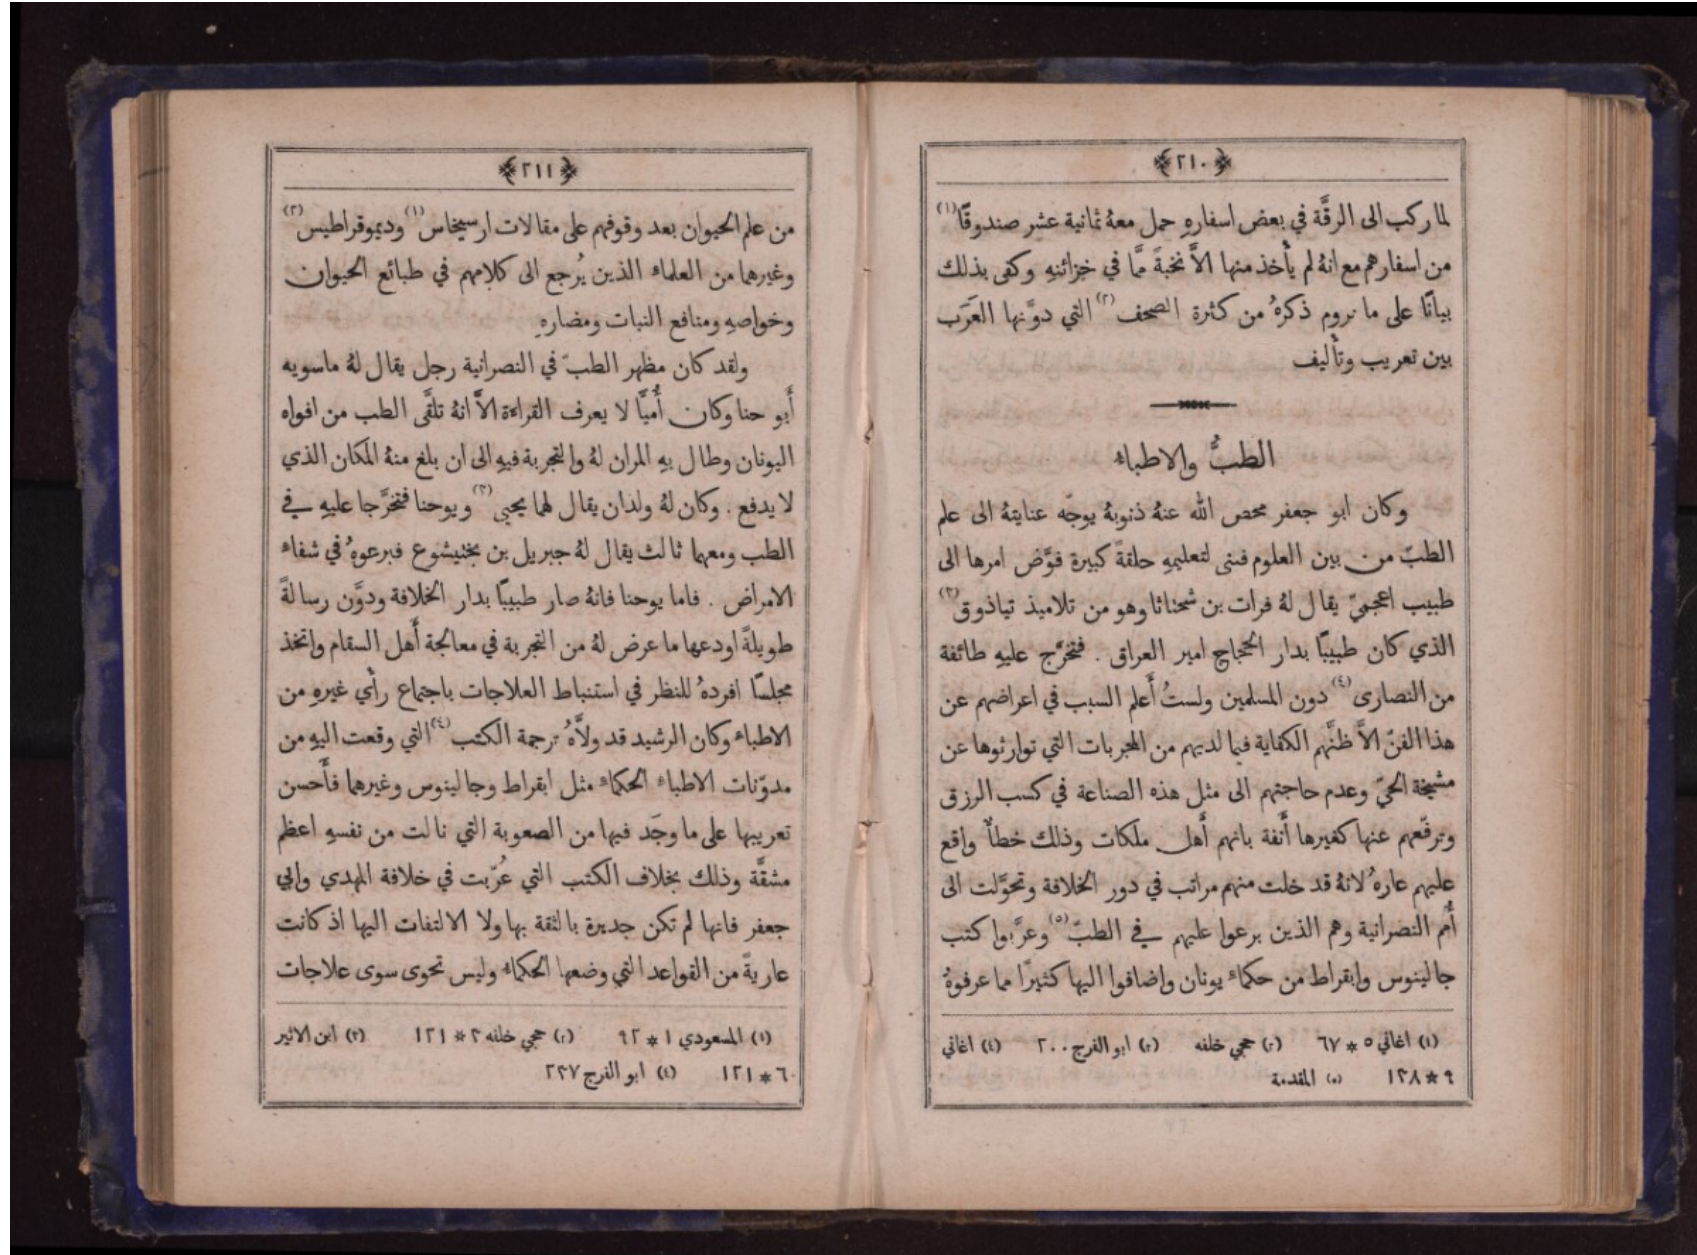 ﴿٢١٠﴾
لما ركب الى الرقَّة في بعض اسفارهِ حمل معهُ ثمانية عشر صندوقًا(١)
من اسفارهم مع انهُ لم يأْخذ منها الاَّ نخبةً ممَّا في خزائنهِ وكفى بذلك
بيانًا على ما نروم ذكرهُ من كثرة الصحف(٢) التي دوَّنها العَرَب
بين تعريب وتأْليف
الطبُّ والاطباء
وكان ابو جعفر محص الله عنهُ ذنوبهُ يوجّه عنايتهُ الى علم
الطبّ من بين العلوم فبنى لتعليمهِ حلقةً كبيرة فوَّض امرها الى
طبيب اعجميّ يقال لهُ فرات بن شحناثا وهو من تلاميذ تياذوق(٣)
الذي كان طبيبًا بدار الحجاج امير العراق . فتخرَّج عليهِ طائفة
من النصارى(٤) دون المسلمين ولستُ أَعلم السبب في اعراضهم عن
هذا الفنّ الاَّ ظنَّهم الكفاية فيما لديهم من المجربات التي توارثوها عن
مشيخة الحيّ وعدم حاجتهم الى مثل هذه الصناعة في كسب الرزق
وترفّعهم عنها كغيرها أَنفة بانهم أَهل ملكات وذلك خطأٌ واقع
عليهم عارهُ لانهُ قد خلت منهم مراتب في دور الخلافة وتحوَّلت الى
أُمم النصرانية وهم الذين برعوا عليهم في الطبّ(٥) وعرَّبوا كتب
جالينوس وابقراط من حكماء يونان واضافوا اليها كثيرًا مما عرفوهُ
(١) اغاني ٥ * ٦٧ (٢) حجي خلفه (٣) ابو الفرج ٢٠٠ (٤) اغاني
٩ * ١٢٨ (٥) المقدمة
﴿٢١١﴾
من علم الحيوان بعد وقوفهم على مقالات ارسيخاس(١) وديموقراطيس(٢)
وغيرهما من العلماء الذين يُرجع الى كلامهم في طبائع الحيوان
وخواصهِ ومنافع النبات ومضارهِ
ولقد كان مظهر الطبّ في النصرانية رجل يقال لهُ ماسويه
أَبو حنا وكان أُميًّا لا يعرف القراءة الاَّ انهُ تلقَّى الطب من افواه
اليونان وطال بهِ المران لهُ والتجربة فيهِ الى ان بلغ منهُ المكان الذي
لا يدفع . وكان لهُ ولدان يقال لهما يحيى(٣) ويوحنا فتخرَّجا عليهِ في
الطب ومعهما ثالث يقال لهُ جبريل بن بختيشوع فبرعوهُ في شفاء
الامراض . فاما يوحنا فانهُ صار طبيبًا بدار الخلافة ودوَّن رسالةً
طويلةً اودعها ما عرض لهُ من التجربة في معالجة أَهل السقام واتخذ
مجلسًا افردهُ للنظر في استنباط العلاجات باجتماع رأْي غيرهِ من
الاطباء وكان الرشيد قد ولاَّهُ ترجمة الكتب(٤) التي وقعت اليهِ من
مدوّنات الاطباء الحكماء مثل ابقراط وجالينوس وغيرهما فأَحسن
تعريبها على ما وجَد فيها من الصعوبة التي نالت من نفسهِ اعظم
مشقَّة وذلك بخلاف الكتب التي عُرّبت في خلافة المهدي وابي
جعفر فانها لم تكن جديرة بالثقة بها ولا الالتفات اليها اذ كانت
عاريةً من القواعد التي وضعها الحكماء وليس تحوى سوى علاجات
(١) المسعودي ١ * ٩٢ (٢) حجي خلفه ٢ * ١٢١ (٣) ابن الاثير
٦ * ١٢١ (٤) ابو الفرج ٢٢٧